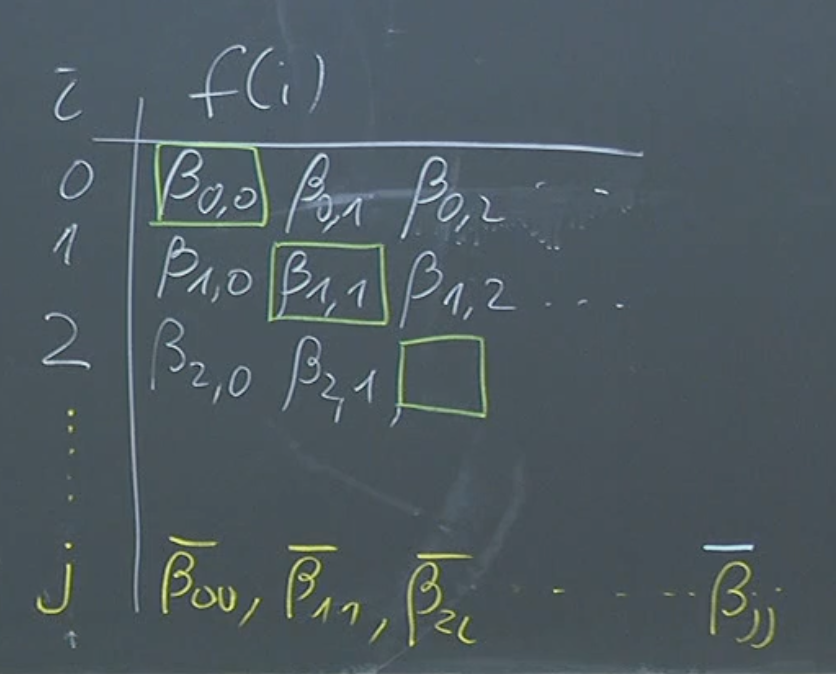 i f(i)
0 β₀,₀ β₀,₁ β₀,₂ ...
1 β₁,₀ β₁,₁ β₁,₂ ...
2 β₂,₀ β₂,₁,
⋮
j β̅₀₀, β̅₁₁, β̅₂₂ ... β̅ⱼⱼ
↑